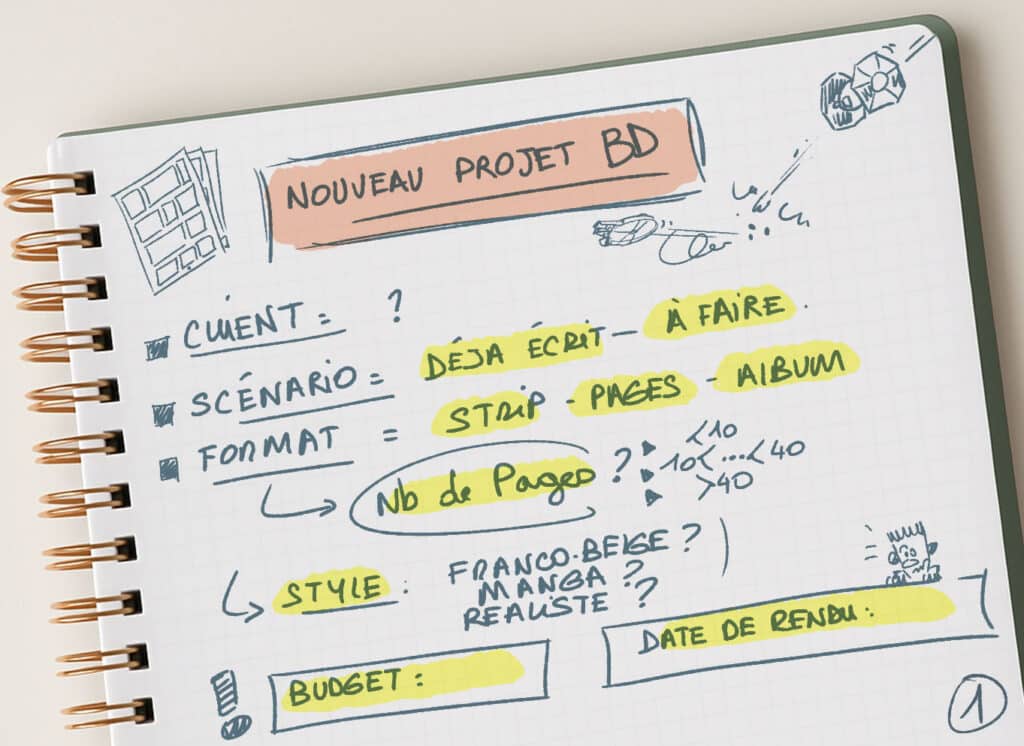 NOUVEAU PROJET BD
CLIENT = ?
SCÉNARIO = DÉJA ÉCRIT - À FAIRE.
FORMAT = STRIP - PAGES - ALBUM
Nb de Pages ?
<10
10<...<40
>40
STYLE : FRANCO-BELGE ?
MANGA ?
RÉALISTE ?
! BUDGET :
DATE DE RENDU :
1